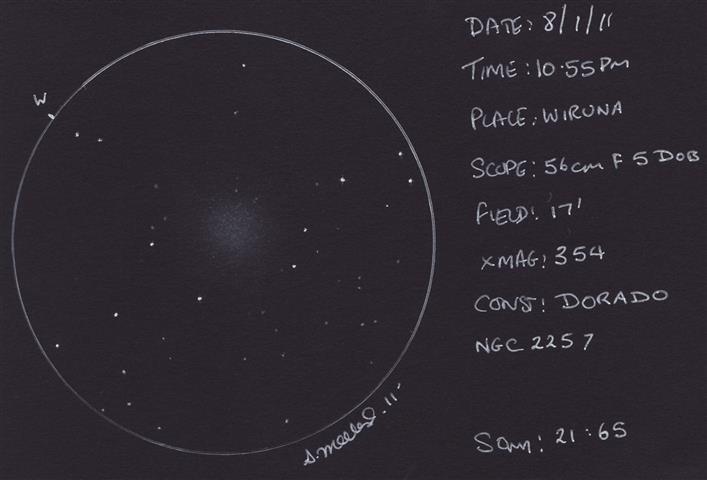 W
DATE: 8/1/11
TIME: 10.55PM
PLACE: WIRUNA
SCOPE: 56cm F 5 DOB
FIELD: 17'
XMAG: 354
CONST: DORADO
NGC 2257
SQM: 21:65
11